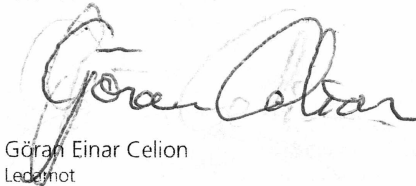 Göran Celion
Göran Einar Celion
Ledamot